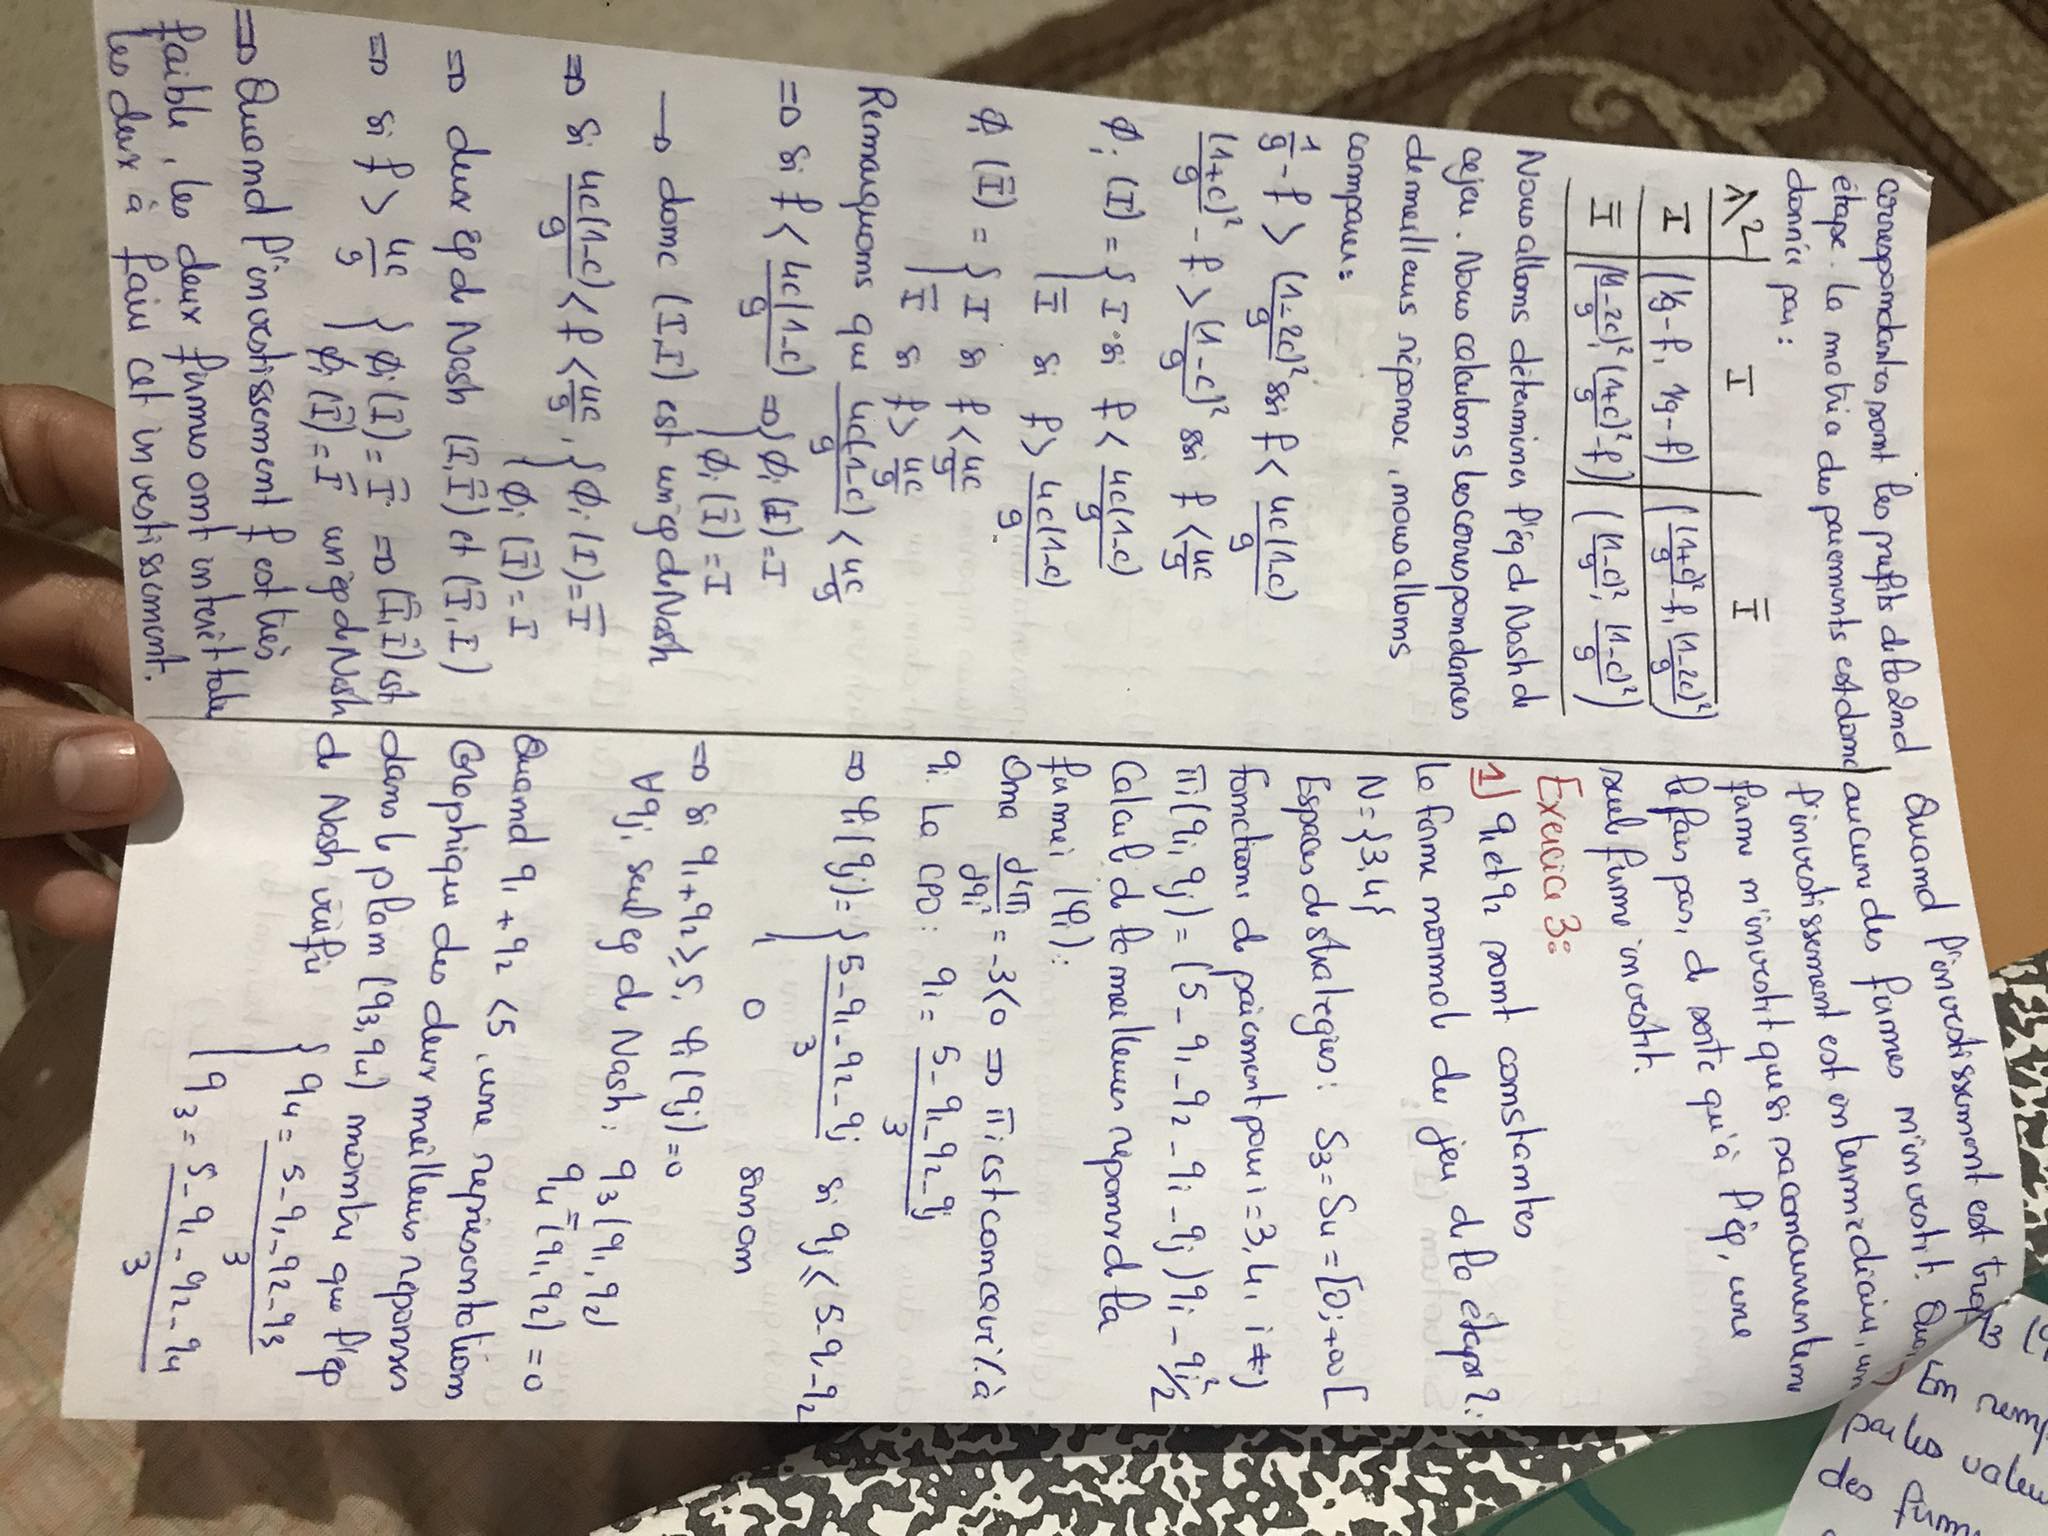 correspondantes sont les profits de la 2nd
étape. la matrice des paiements est donc
donnée par :
1\2 | I | Ī
I | (1/9 - f, 1/9 - f) | ((1+c)²/9 - f, (1-2c)²/9)
Ī | ((1-2c)²/9, (1+c)²/9 - f) | ((1-c)²/9, (1-c)²/9)
Nous allons déterminer l'éq de Nash de
ce jeu. Nous calculons les correspondances
de meilleurs réponse, nous allons
comparer :
1/9 - f > (1-2c)²/9 ssi f < 4c(1-c)/9
(1+c)²/9 - f > (1-c)²/9 ssi f < 4c/9
ϕi (I) = { I si f < 4c(1-c)/9
Ī si f > 4c(1-c)/9
ϕi (Ī) = { I si f < 4c/9
Ī si f > 4c/9
Remarquons que 4c(1-c)/9 < 4c/9
⇒ si f < 4c(1-c)/9 ⇒ { ϕi (I) = I
ϕi (Ī) = I
→ donc (I,I) est un éq de Nash
⇒ si 4c(1-c)/9 < f < 4c/9, { ϕi (I) = Ī
ϕi (Ī) = I
⇒ deux éq d Nash (I,Ī) et (Ī,I)
⇒ si f > 4c/9 { ϕi (I) = Ī ⇒ (Ī,Ī) est
ϕi (Ī) = Ī un éq d Nash
⇒ Quand l'investissement f est très
faible, les deux firmes ont intérêt toute
les deux à faire cet investissement.
Quand l'investissement est trop
aucune des firmes n'investit.
l'investissement est intermédiaire, un
firme n'investit que si sa concurrente ne
le fais pas, de sorte qu'à l'éq, une
seul firme investit.
Exercice 3:
1) q1 et q2 sont constantes
la forme normal du jeu de la étape 2 :
N = {3,4}
Espaces de stratégies : S3 = S4 = [0, +∞[
fonctions de paiement pour i = 3,4, i ≠ j
πi (qi, qj) = (5 - q1 - q2 - qi - qj) qi - qi²/2
Calcul de la meilleures réponse de la
firme i (φi) :
Ona d²πi/dqi² = -3 < 0 ⇒ πi est concave i/à
qi. La CPO : qi = (5 - q1 - q2 - qj)/3
⇒ φi (qj) = { (5 - q1 - q2 - qj)/3 si qj ≤ 5 - q1 - q2
0 sinon
⇒ si q1 + q2 ≥ 5, φi (qj) = 0
∀qj, seul eq d Nash : q3 (q1, q2)
= q4 (q1, q2) = 0
Quand q1 + q2 < 5, une représentation
Graphique des deux meilleurs réponses
dans l plan (q3, q4) montre que l'éq
d Nash vérifie
{ q4 = (5 - q1 - q2 - q3)/3
q3 = (5 - q1 - q2 - q4)/3
par les valeu
des firm